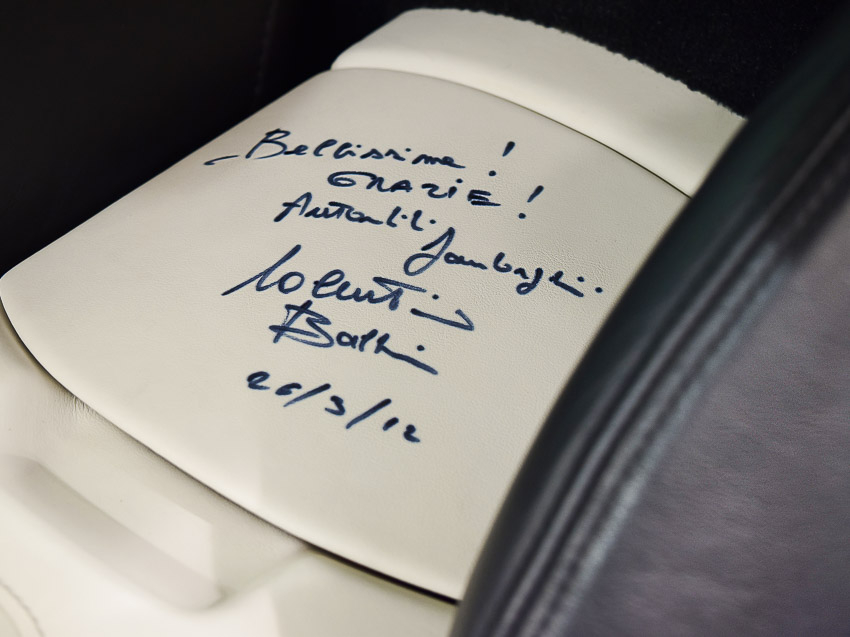 Bellissima !
GRAZIE !
Automobili
Lamborghini.
Valentino
Balboni
26/3/12